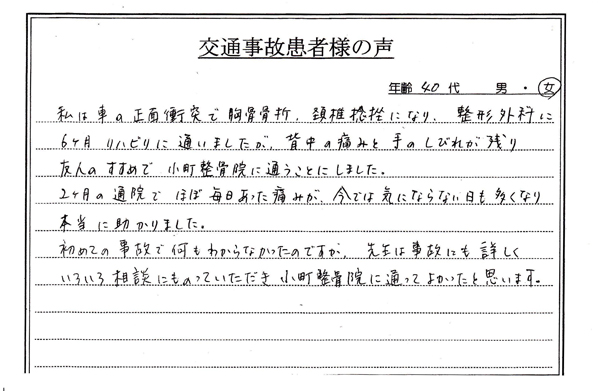 交通事故患者様の声
年齢 40 代 男 ・ 女
私は車の正面衝突で胸骨骨折、頚椎捻挫になり、整形外科に
6ヶ月リハビリに通いましたが、背中の痛みと手のしびれが残り
友人のすすめで小町整骨院に通うことにしました。
2ヶ月の通院でほぼ毎日あった痛みが、今では気にならない日も多くなり
本当に助かりました。
初めての事故で何もわからなかったのですが、先生は事故にも詳しく
いろいろ相談にものっていただき小町整骨院に通ってよかったと思います。